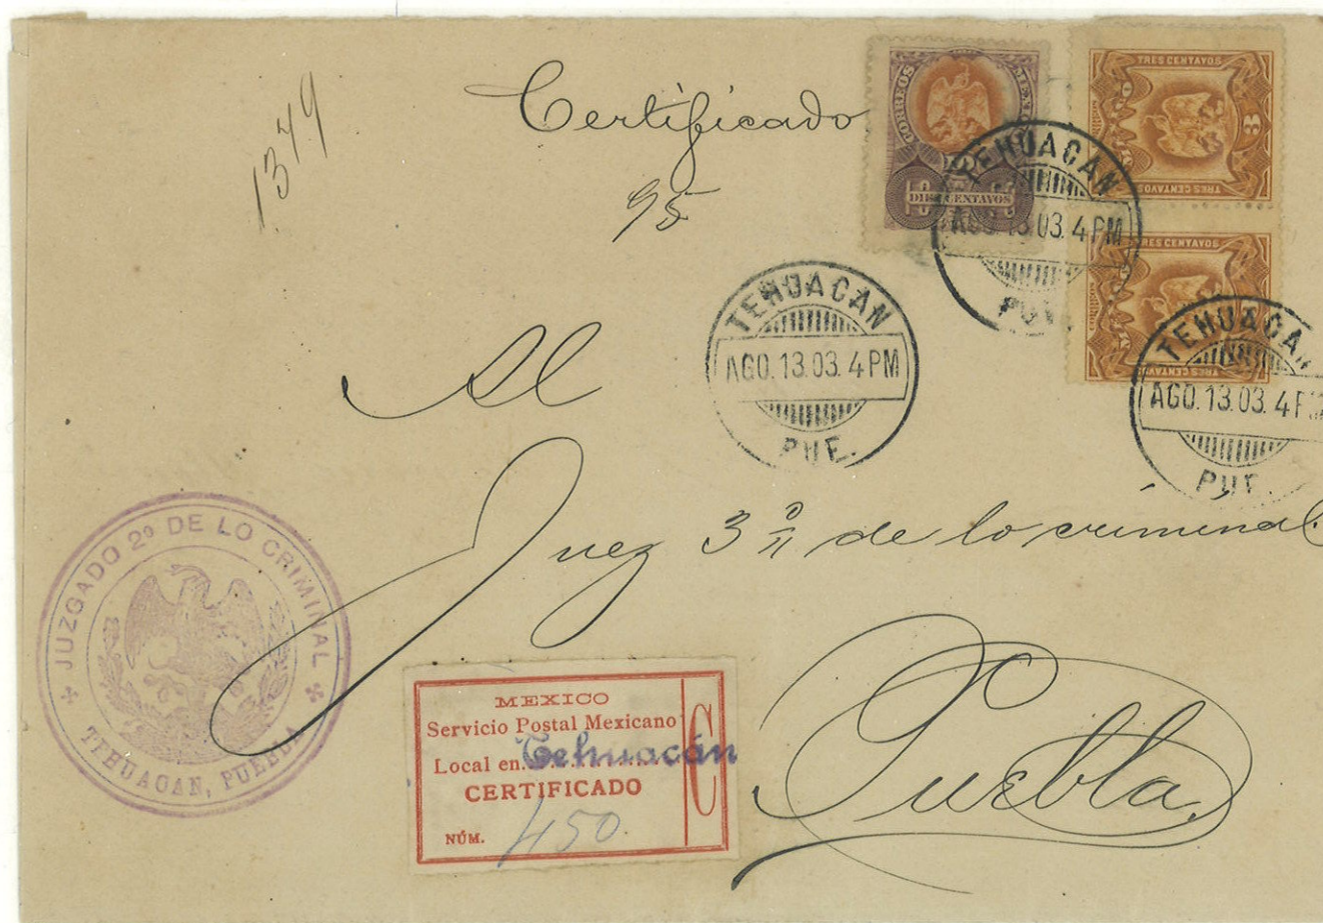 1379
Certificado
95
CORREOS MEXICO
10 10
DIEZ CENTAVOS
TRES CENTAVOS
MEXICO
3
TRES CENTAVOS
TRES CENTAVOS
TEHUACAN
AGO. 13.03. 4 PM
PUE.
TEHUACAN
AGO. 13.03. 4 PM
PUE.
TEHUACAN
AGO. 13.03. 4 P
PUE.
Al
Juez 3º de lo criminal
Puebla
JUZGADO 2º DE LO CRIMINAL
TEHUACAN, PUEBLA
MEXICO
Servicio Postal Mexicano
Local en Tehuacán
CERTIFICADO
C
NÚM. 450.